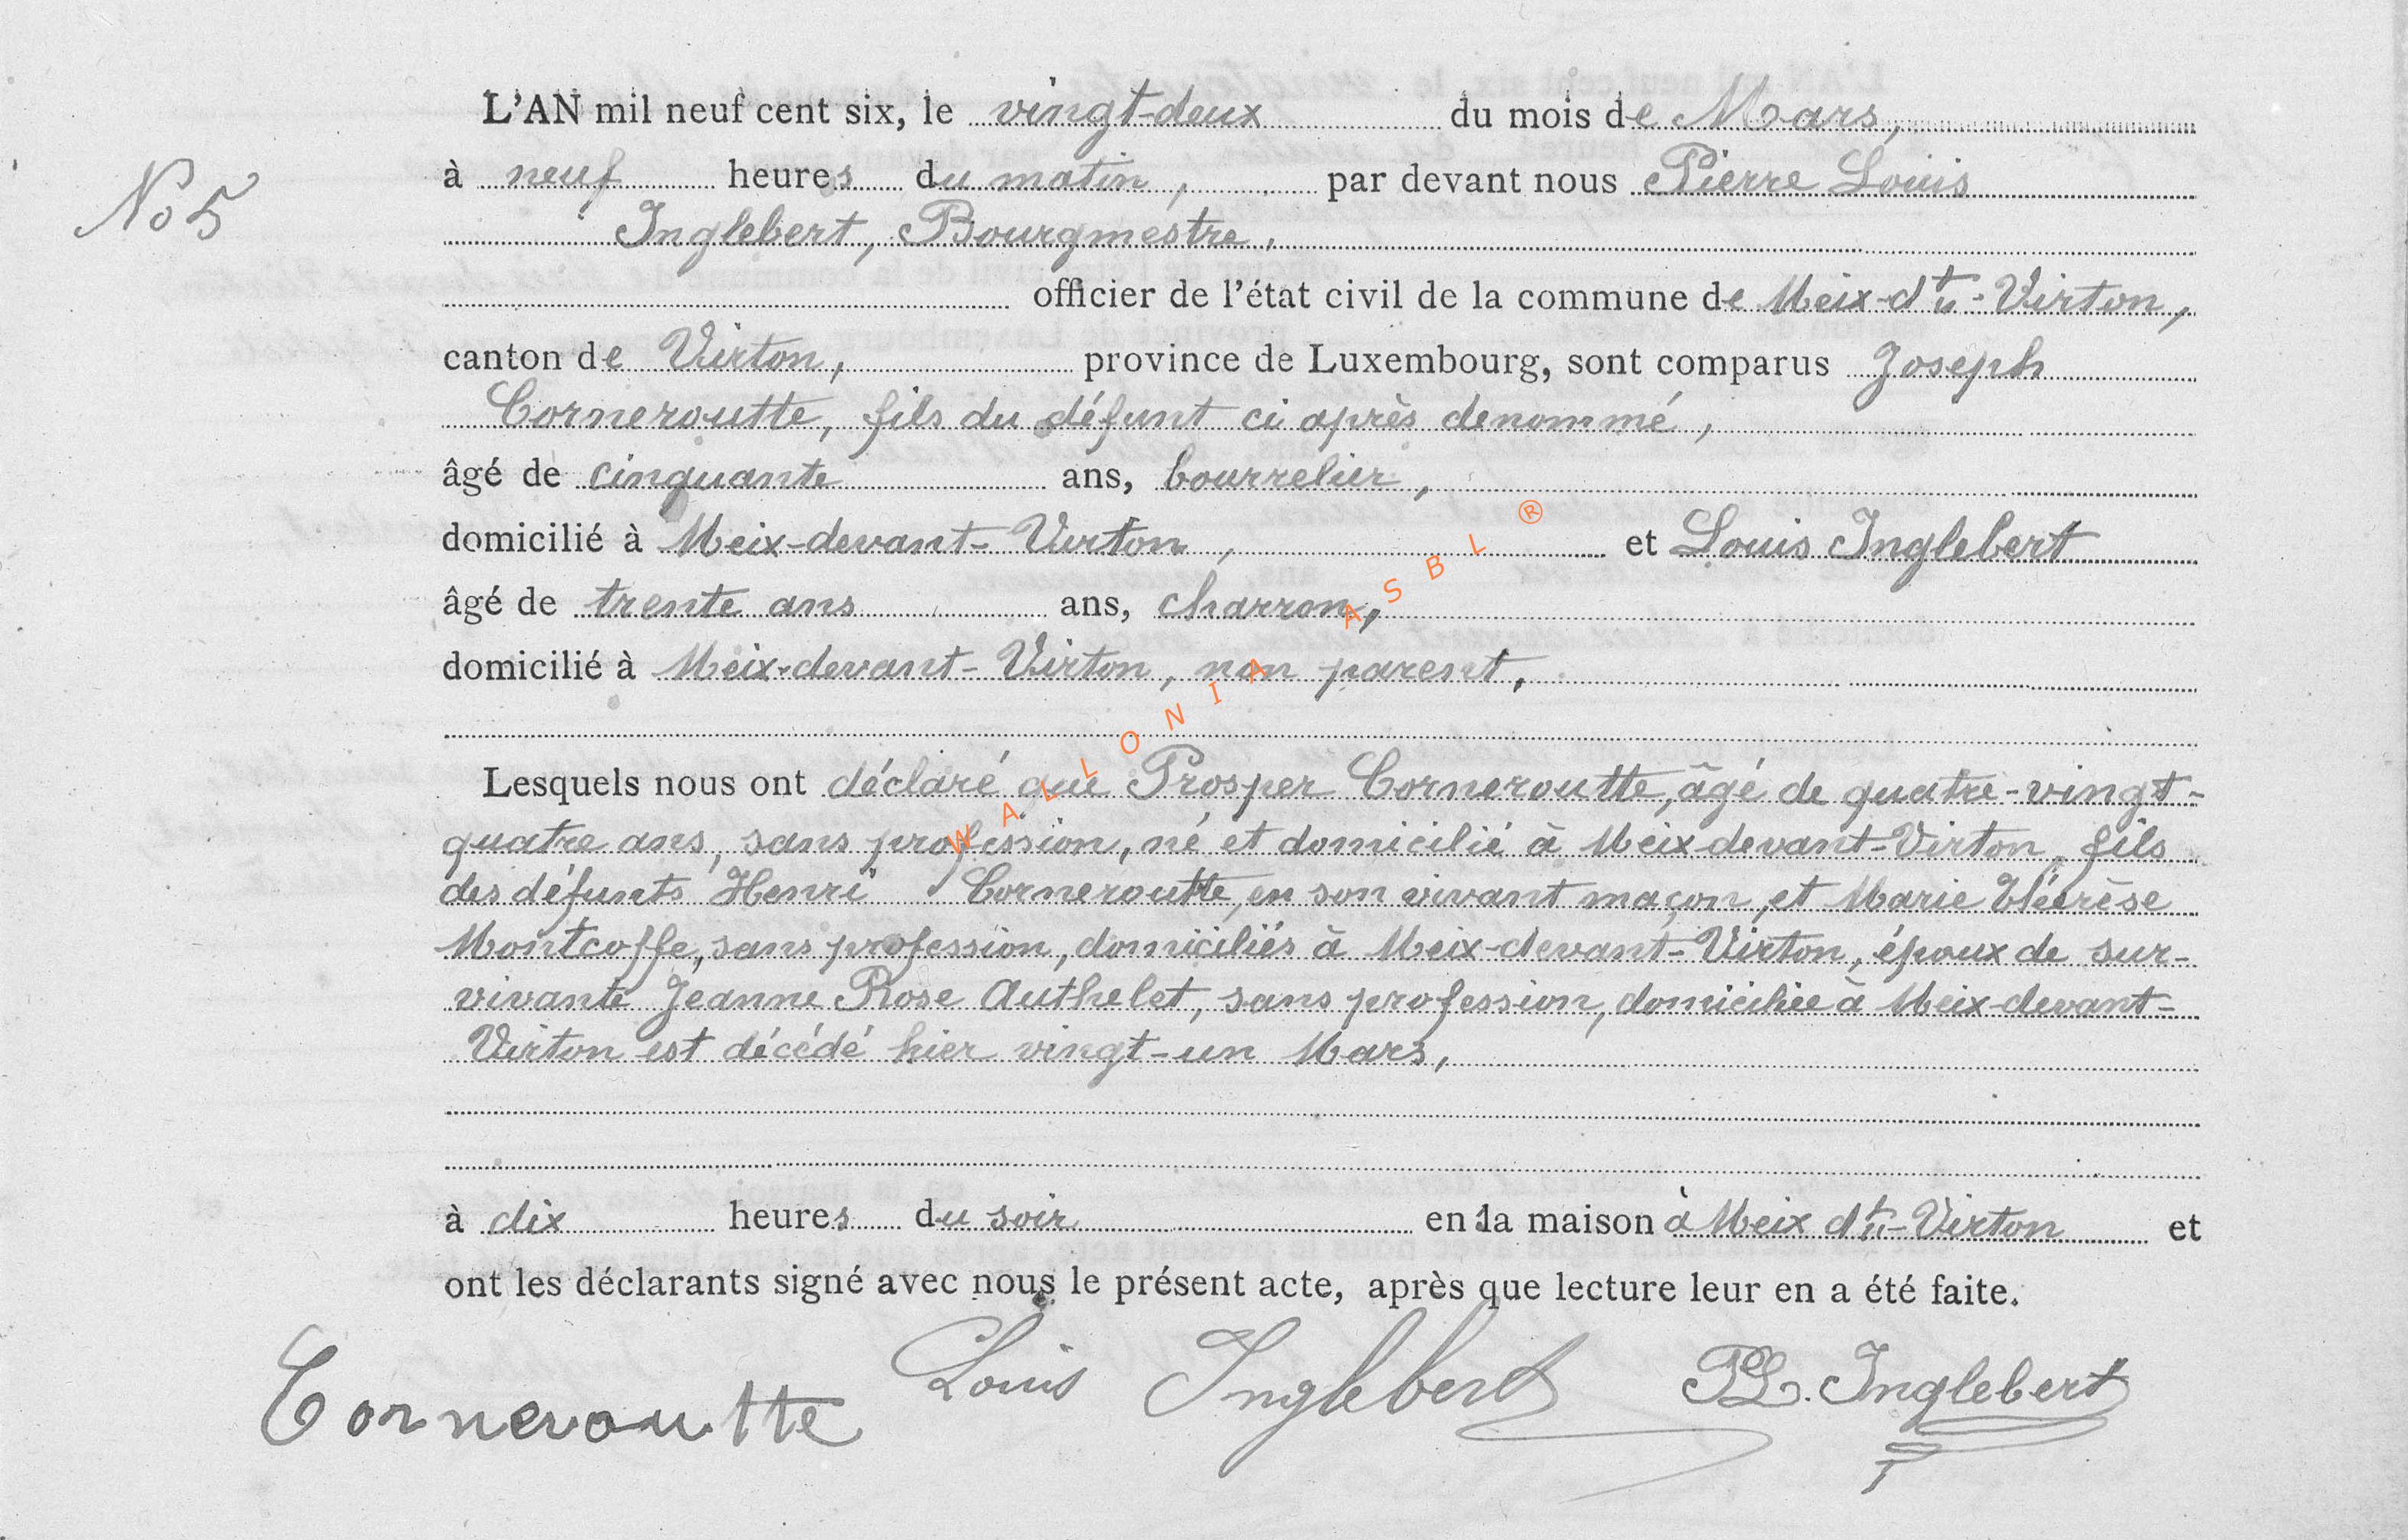 L'AN mil neuf cent six, le vingt-deux du mois de Mars,
No 5
à neuf heures du matin, par devant nous Pierre Louis
Inglebert, Bourgmestre,
officier de l'état civil de la commune de Meix-dt-Virton,
canton de Virton, province de Luxembourg, sont comparus Joseph
Corneroutte, fils du défunt ci après denommé,
âgé de cinquante ans, bourrelier,
domicilié à Meix-devant-Virton, et Louis Inglebert
âgé de trente ans ans, charron,
domicilié à Meix-devant-Virton, non parent,
Lesquels nous ont déclaré que Prosper Corneroutte, âgé de quatre-vingt-
quatre ans, sans profession, né et domicilié à Meix-devant-Virton, fils
des défunts Henri Corneroutte, en son vivant maçon, et Marie Thérèse
Montcoffe, sans profession, domiciliés à Meix-devant-Virton, époux de sur-
vivante Jeanne Rose Authelet, sans profession, domiciliée à Meix-devant-
Virton est décédé hier vingt-un Mars,
à dix heures du soir en la maison à Meix dt-Virton et
ont les déclarants signé avec nous le présent acte, après que lecture leur en a été faite.
Corneroutte Louis Inglebert PL. Inglebert
WALLONIA ASBL ®